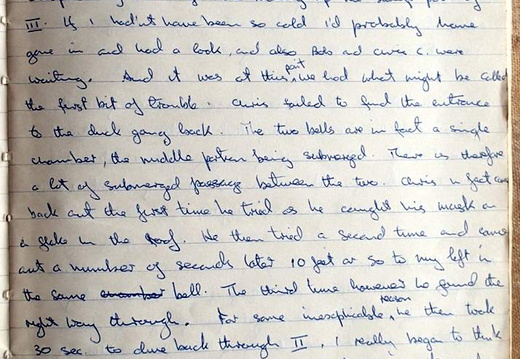 III. If I had'nt have been so cold I'd probably have
gone in and had a look, and also Bob and C. were
waiting. And it was at this point, we had what might be called
the first bit of trouble. Chris failed to find the entrance
to the duck going back. The two bells are in fact a single
chamber, the middle portion being submerged. There is therefore
a lot of submerged passage between the two. Chris in fact came
back out the first time he tried as he caught his mask on
a flake in the roof. He then tried a second time and came
out a number of seconds later 10 feet or so to my left in
the same chamber bell. The third time however he found the
right way through. For some inexplicable reason, he then took
30 sec. to dive back through II, I really began to think